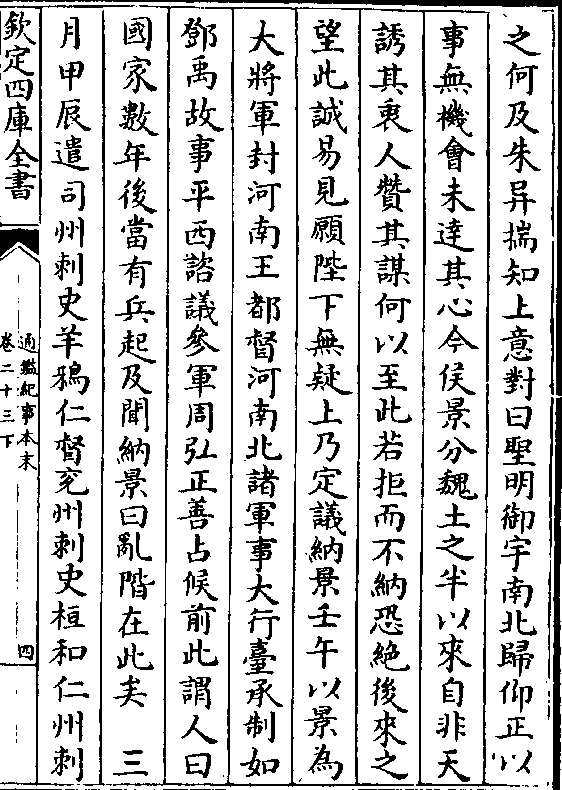 之何及朱异揣知上意對曰聖明御宇南北歸仰正以
事無機會未達其心今侯景分魏土之半以來自非天
誘其衷人贊其謀何以至此若拒而不納恐絶後來之
望此誠易見願陛下無疑上乃定議納景壬午以景為
大將軍封河南王都督河南北諸軍事大行臺承制如
鄧禹故事平西諮議參軍周弘正善占候前此謂人曰
國家數年後當有兵起及聞納景曰亂階在此矣　三
月甲辰遣司州刺史羊鴉仁督兖州刺史桓和仁州刺
欽定四庫全書
通鑑紀事本末
卷二十三下
四